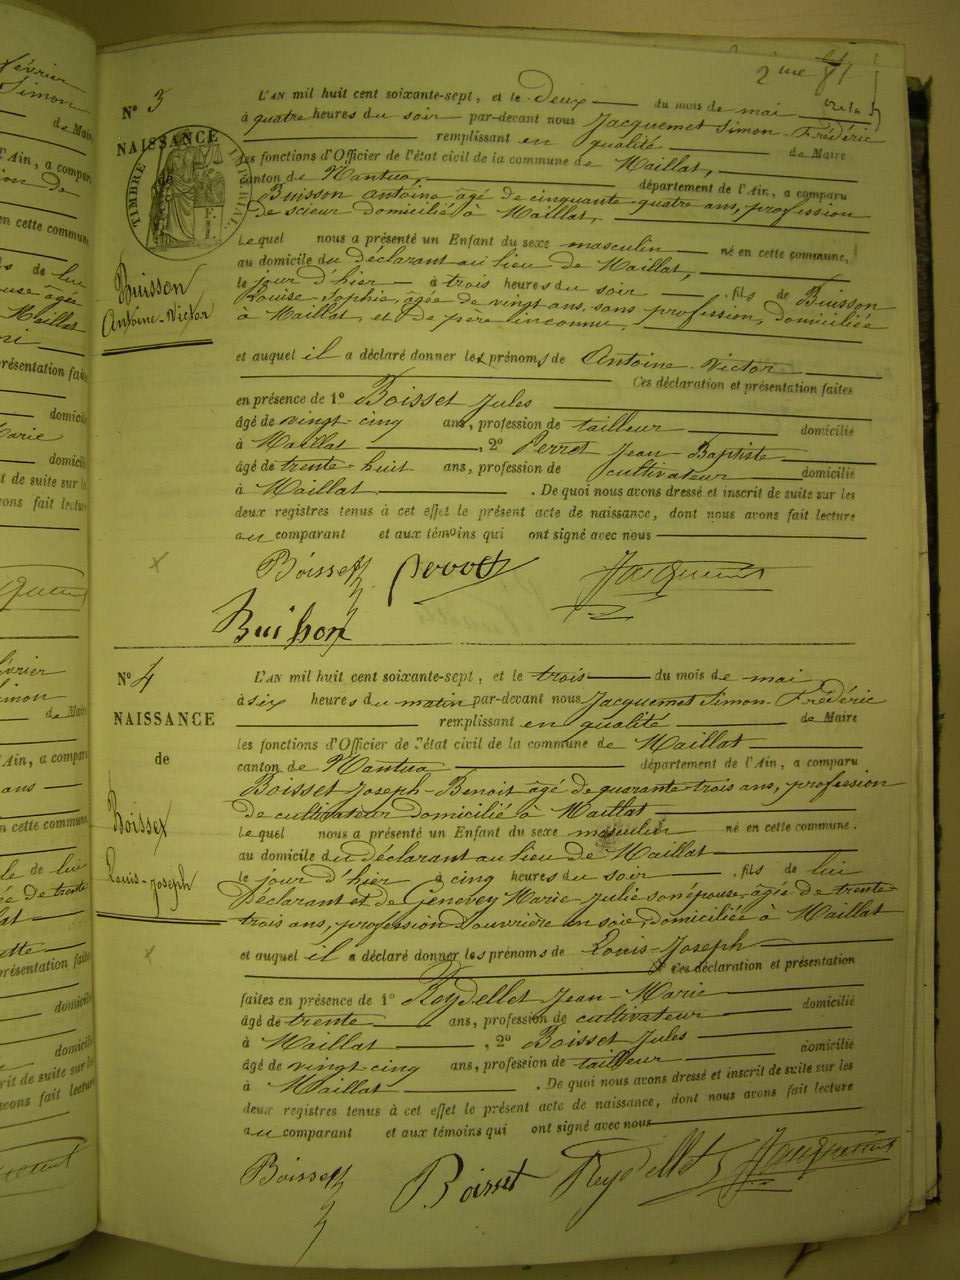 2me
N° 3
NAISSANCE
de
TIMBRE IMPÉRIAL
Buisson
Antoine-Victor
L'AN mil huit cent soixante-sept, et le deux du mois de mai
à quatre heures du soir par-devant nous Jacquemet Simon-Frédéric
remplissant en qualité de Maire
les fonctions d'Officier de l'état civil de la commune de Maillat,
canton de Nantua, département de l'Ain, a comparu
Buisson Antoine âgé de cinquante-quatre ans, profession
de scieur domicilié à Maillat,
Lequel nous a présenté un Enfant du sexe masculin né en cette commune,
au domicile du déclarant au lieu de Maillat,
le jour d'hier à trois heures du soir, fils de Buisson
Louise-Sophie, âgée de vingt ans, sans profession, domiciliée
à Maillat, et de père inconnu,
et auquel il a déclaré donner les prénoms de Antoine-Victor
Ces déclaration et présentation faites
en présence de 1° Boisset Jules
âgé de vingt-cinq ans, profession de tailleur domicilié
à Maillat, 2° Perret Jean-Baptiste
âgé de trente-huit ans, profession de cultivateur domicilié
à Maillat. De quoi nous avons dressé et inscrit de suite sur les
deux registres tenus à cet effet le présent acte de naissance, dont nous avons fait lecture
au comparant et aux témoins qui ont signé avec nous
Boisset Perret Jacquemet
Buisson
N° 4
NAISSANCE
de
Boisset
Louis-Joseph
L'AN mil huit cent soixante-sept, et le trois du mois de mai
à six heures du matin par-devant nous Jacquemet Simon-Frédéric
remplissant en qualité de Maire
les fonctions d'Officier de l'état civil de la commune de Maillat
canton de Nantua département de l'Ain, a comparu
Boisset Joseph-Benoit âgé de quarante-trois ans, profession
de cultivateur domicilié à Maillat
Lequel nous a présenté un Enfant du sexe masculin né en cette commune.
au domicile du déclarant au lieu de Maillat
le jour d'hier à cinq heures du soir, fils de lui
Déclarant et de Genevey Marie-Julie son épouse, âgée de trente-
trois ans, profession d'ouvrière en soie, domiciliée à Maillat
et auquel il a déclaré donner les prénoms de Louis-Joseph
Ces déclaration et présentation
faites en présence de 1° Reydellet Jean-Marie domicilié
âgé de trente ans, profession de cultivateur
à Maillat, 2° Boisset Jules
âgé de vingt-cinq ans, profession de tailleur domicilié
à Maillat. De quoi nous avons dressé et inscrit de suite sur les
deux registres tenus à cet effet le présent acte de naissance, dont nous avons fait lecture
au comparant et aux témoins qui ont signé avec nous
Boisset Boisset Reydellet Jacquemet